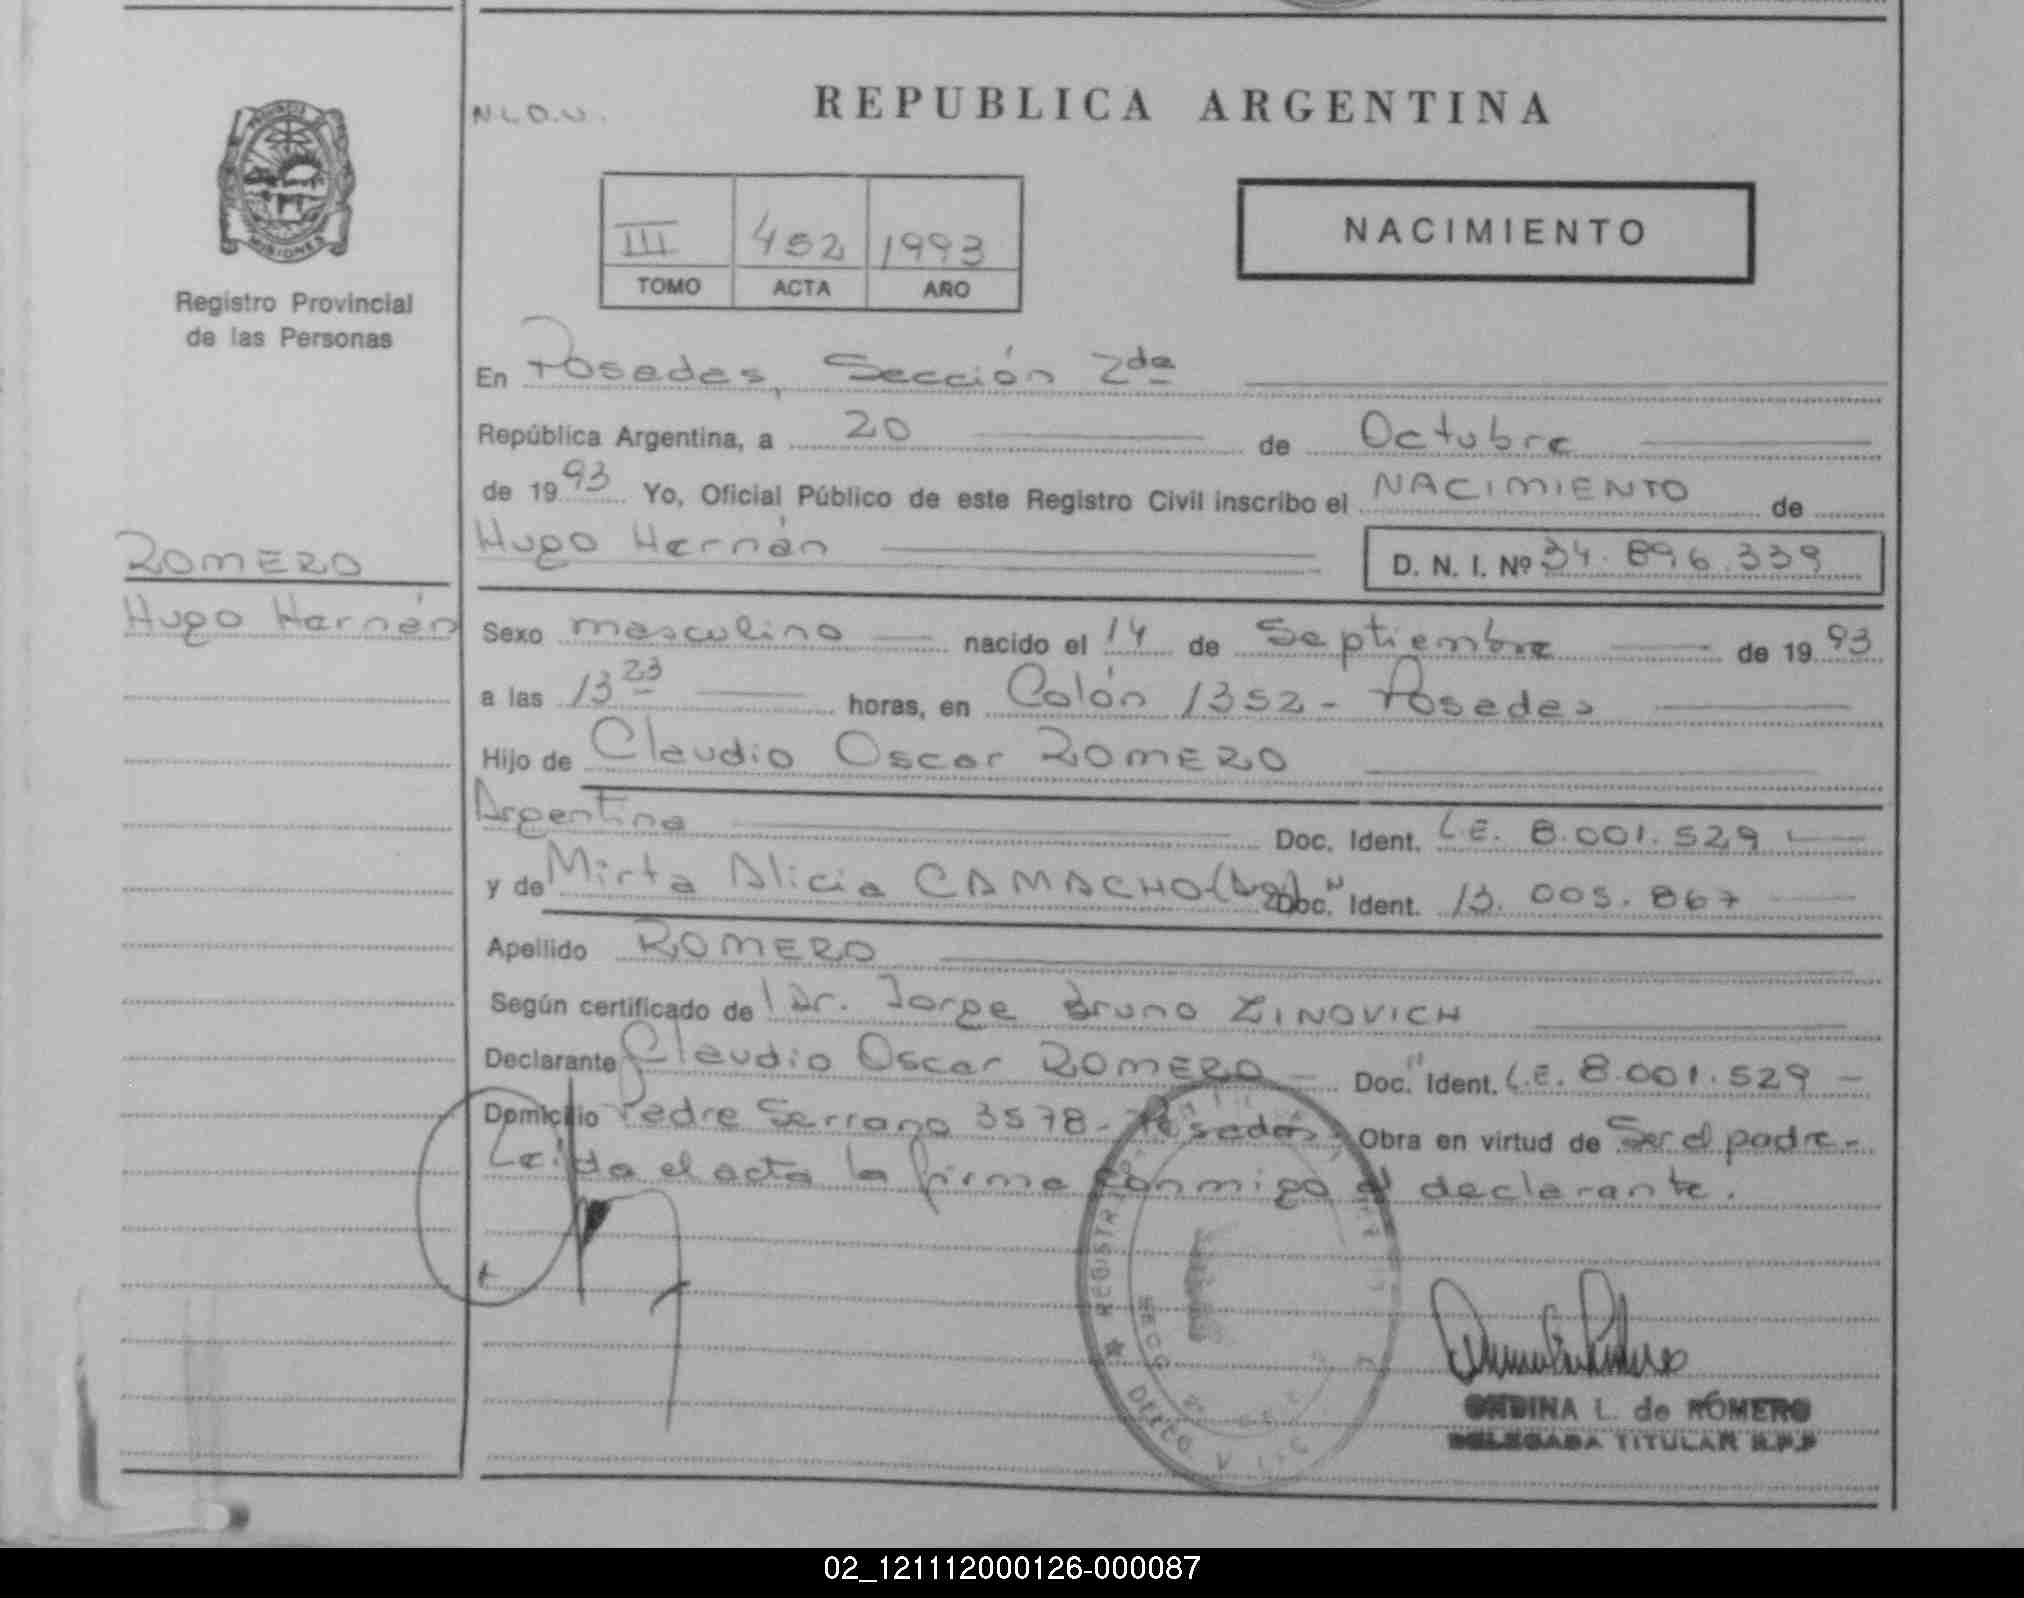 N.L.O.U.
REPUBLICA ARGENTINA
MISIONES
Registro Provincial
de las Personas
III 452 1993
TOMO ACTA AÑO
NACIMIENTO
En Posadas, Sección 2da
República Argentina, a 20 de Octubre
de 1993 Yo, Oficial Público de este Registro Civil inscribo el NACIMIENTO de
Hugo Hernán D. N. I. Nº 34.896.339
ROMERO
Hugo Hernán
Sexo masculino nacido el 14 de Septiembre de 1993
a las 13 23 horas, en Colón 1352 - Posadas
Hijo de Claudio Oscar ROMERO
Argentina Doc. Ident. L.E. 8.001.529
y de Mirta Alicia CAMACHO (Arg) Doc. Ident. 13.005.867
Apellido ROMERO
Según certificado de Dr. Jorge Bruno ZINOVICH
Declarante Claudio Oscar ROMERO - Doc. Ident. L.E. 8.001.529 -
Domicilio Padre Serrano 3578 - Posadas Obra en virtud de Ser el padre -
Leída el acta la firma conmigo el declarante.
ONDINA L. de ROMERO
DELEGADA TITULAR R.P.P
02_121112000126-000087